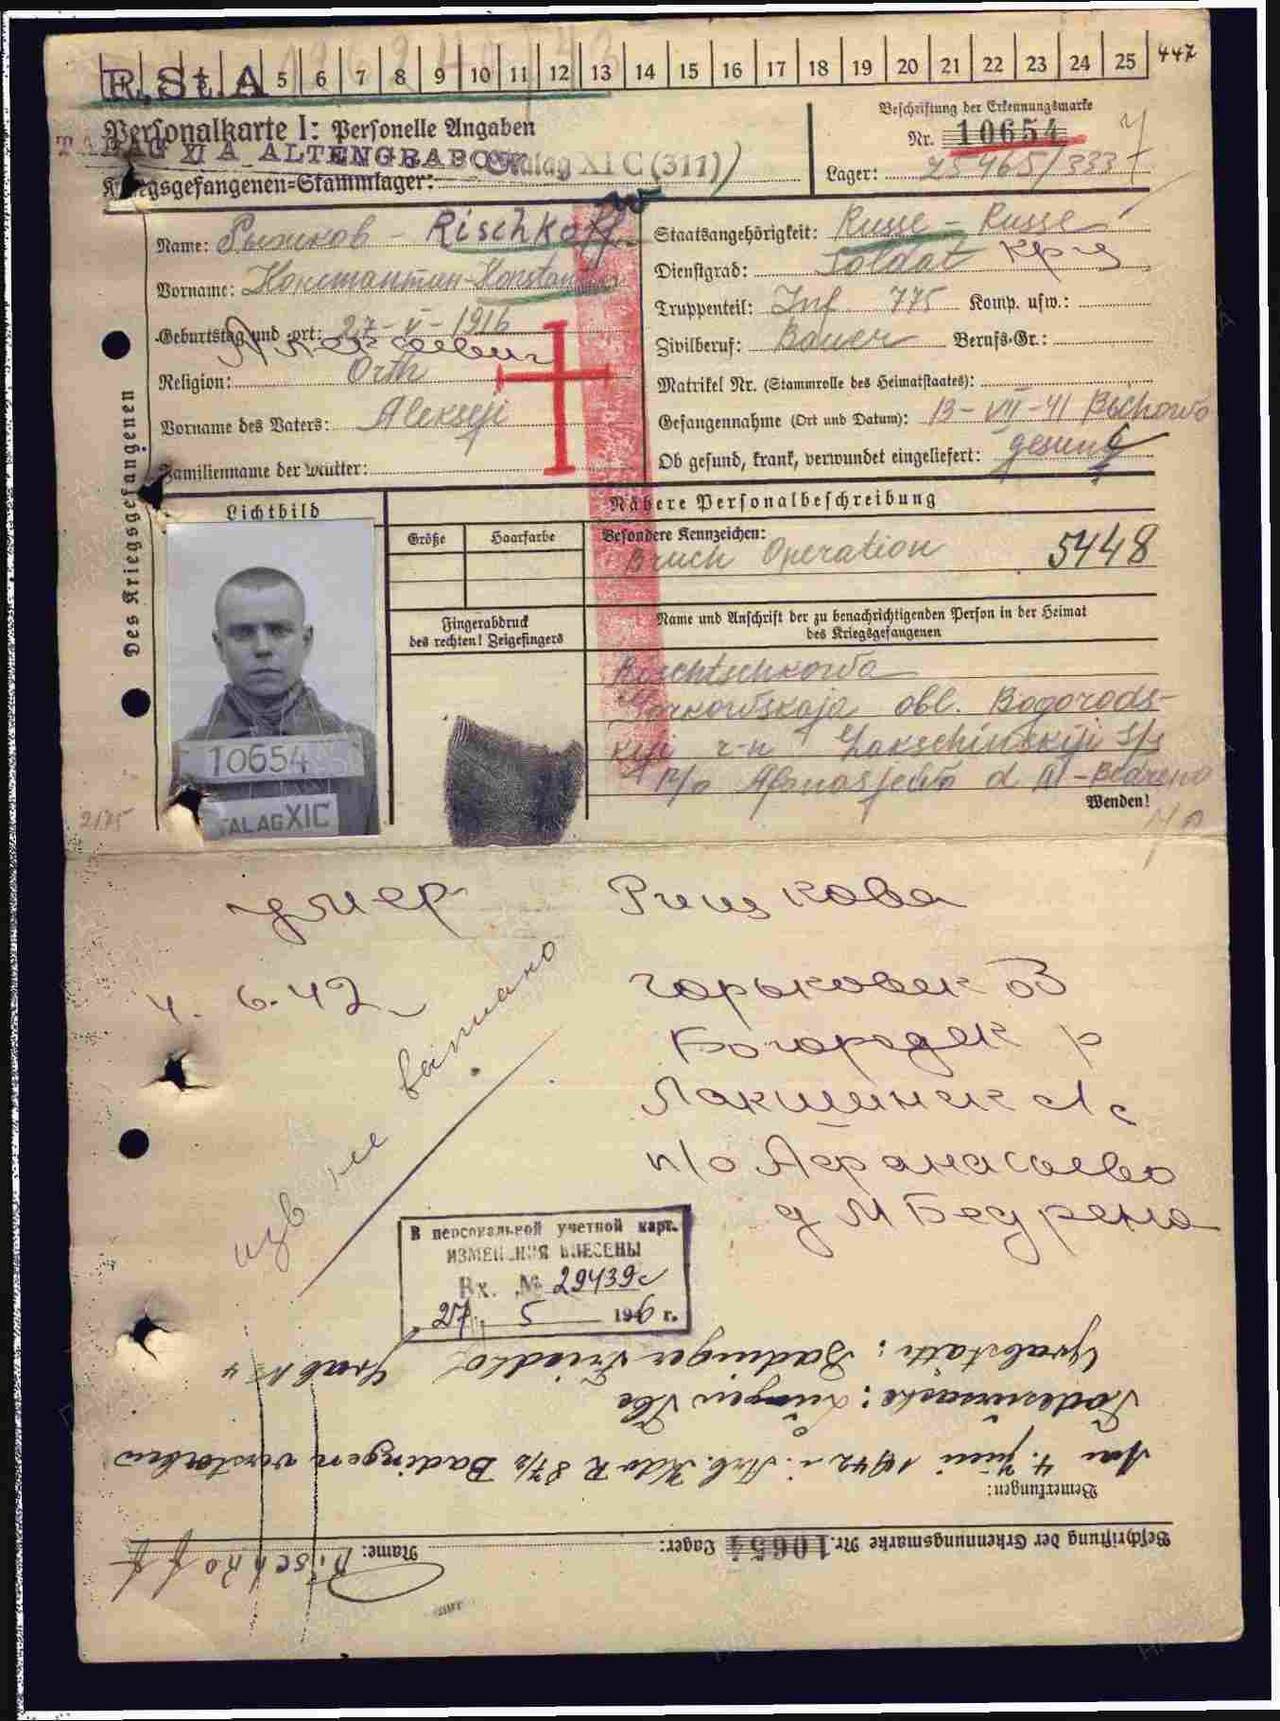 R.St.A 5 6 7 8 9 10 11 12 13 14 15 16 17 18 19 20 21 22 23 24 25 447
Personalkarte I: Personelle Angaben
XI A ALTENGRABOW Stalag XI C (311)
Kriegsgefangenen=Stammlager:
Beschriftung der Erkennungsmarke
Nr. 10654
Lager: 25465/333
Des Kriegsgefangenen
Name: Рыжков - Rischkoff
Vorname: Константин - Konstantin
Geburtstag und -ort: 27-V-1916
Religion: Orth
Vorname des Vaters: Alekseji
Familienname der Mutter:
Staatsangehörigkeit: Russe - Russe
Dienstgrad: Soldat
Truppenteil: Inf. 775 Komp. usw.:
Zivilberuf: Bauer Berufs-Gr.:
Matrikel Nr. (Stammrolle des Heimatstaates):
Gefangennahme (Ort und Datum): 13-VII-41 Bychowo
Ob gesund, krank, verwundet eingeliefert: gesund
Lichtbild
10654
STALAG XIC
Nähere Personalbeschreibung
Größe Haarfarbe
Besondere Kennzeichen:
Bruch Operation 5448
Fingerabdruck
des rechten! Zeigefingers
Name und Anschrift der zu benachrichtigenden Person in der Heimat
des Kriegsgefangenen
Gorkowskaja obl. Bogorods-
kiji r-n Lakschinskiji s/s
p/o Afanasjewo d M-Bedreno
Wenden!
2175
умер Ришкова
4. 6.42
Горьковск об
Богородск р
Лакшинск с
п/о Афанасьево
д М Бедрена
изв не
В персональной учетной карт.
ИЗМЕНЕНИЯ ВНЕСЕНЫ
Вх. № 29439с
27. 5 1946 г.
Beschriftung der Erkennungsmarke Nr. 10654 Lager: Name: Rischkoff
Bemerkungen:
Am 4. Juni 1942 i. Arb. Kdo R 87/2 Badingen verstorben
Todesursache: Lungen Tbc
Grabstätte: Badingen Friedhof Grab N 4